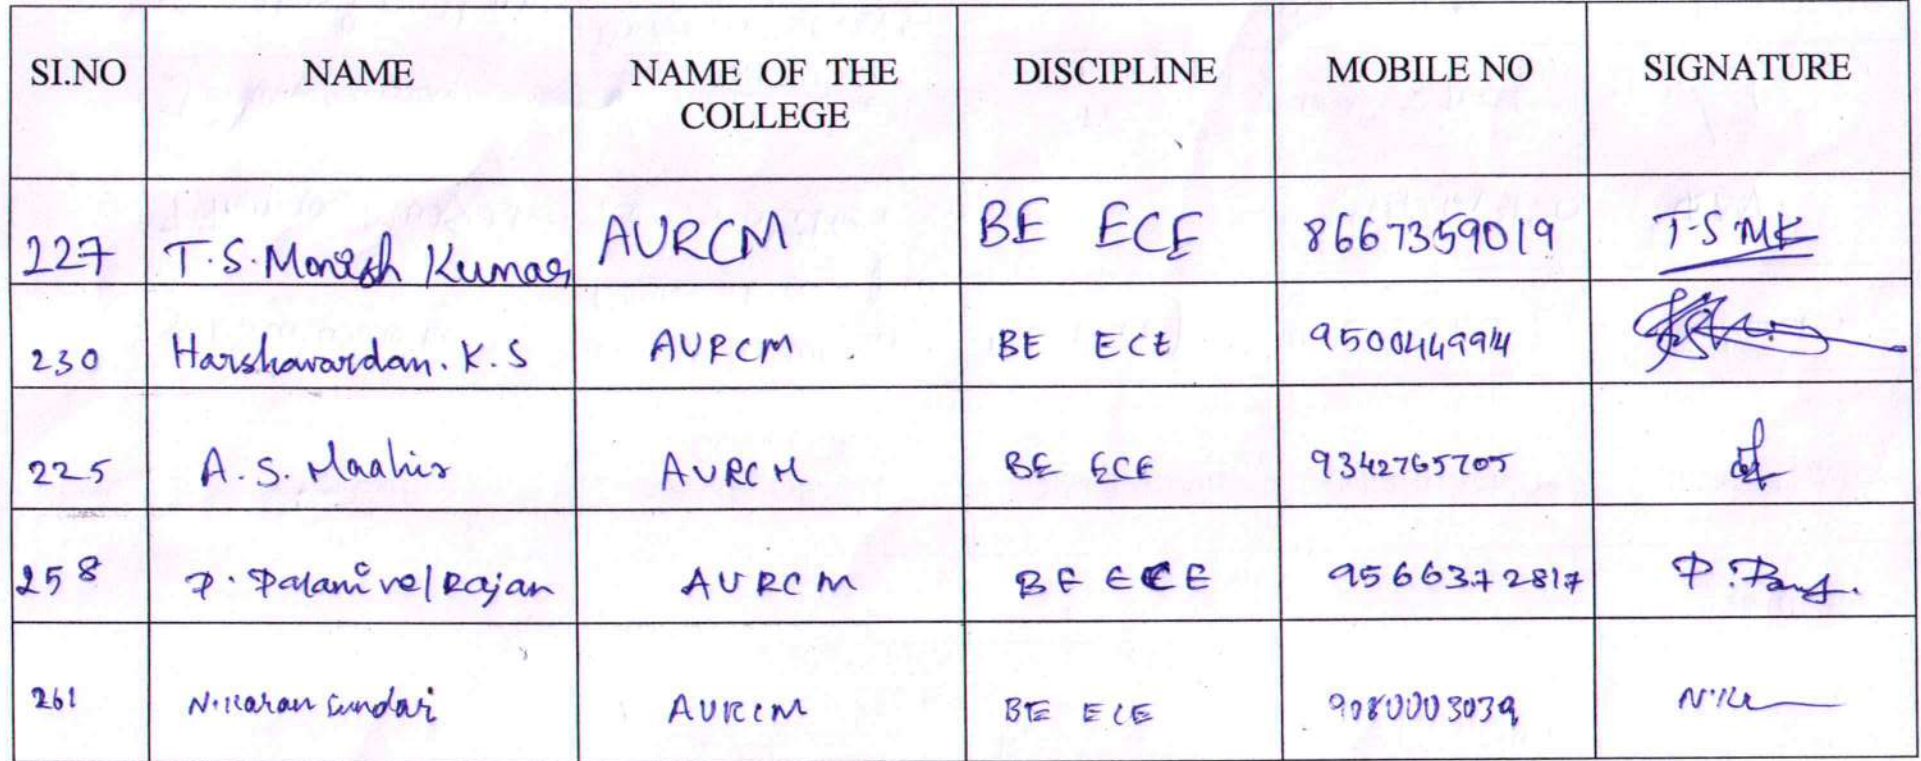 SI.NO NAME NAME OF THE COLLEGE DISCIPLINE MOBILE NO SIGNATURE
227 T.S.Monish Kumar AURCM BE ECE 8667359019 T.S MK
230 Harshavardan.K.S AURCM BE ECE 9500449914
225 A.S. Maahir AURCM BE ECE 9342765705
258 P. Palanivel Rajan AURCM BE ECE 9566372817
261 N.Karan Sundar AURCM BE ECE 9080003039